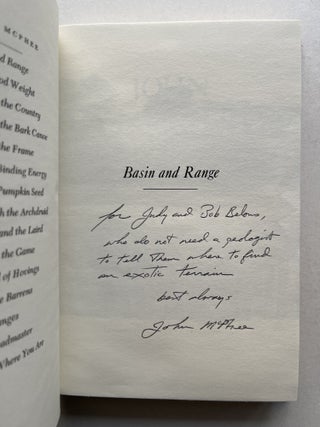 MCPHEE
d Range
od Weight
the Country
the Bark Canoe
the Frame
Binding Energy
Pumpkin Seed
h the Archdruid
and the Laird
the Game
l of Hovings
e Barrens
nges
admaster
Where You Are
Basin and Range
for Judy and Bob
who do not need a geologist
to tell them where to find
an exotic terrain
best always
John McPhee